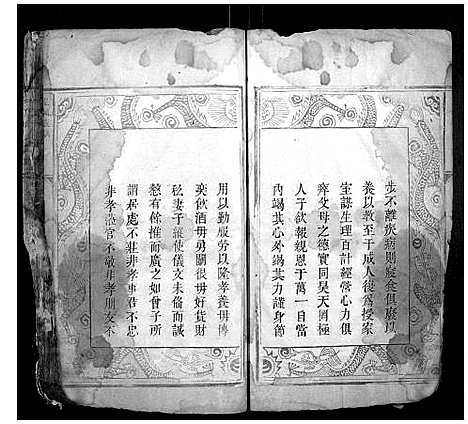 步不離疾病則寢食俱廢以
養以教至于成人復為授家
室謀生理百計經營心力俱
瘁父母之德實同昊天罔極
人子欲報親恩于萬一自當
內竭其心外竭其力謹身節
用以勤服勞以隆孝養毋博
奕飲酒毋勇鬬很毋好貨財
私妻子縱使儀文未備而誠
愨有餘推而廣之如曾子所
謂居處不莊非孝事君不忠
非孝蒞官不敬非孝朋友不